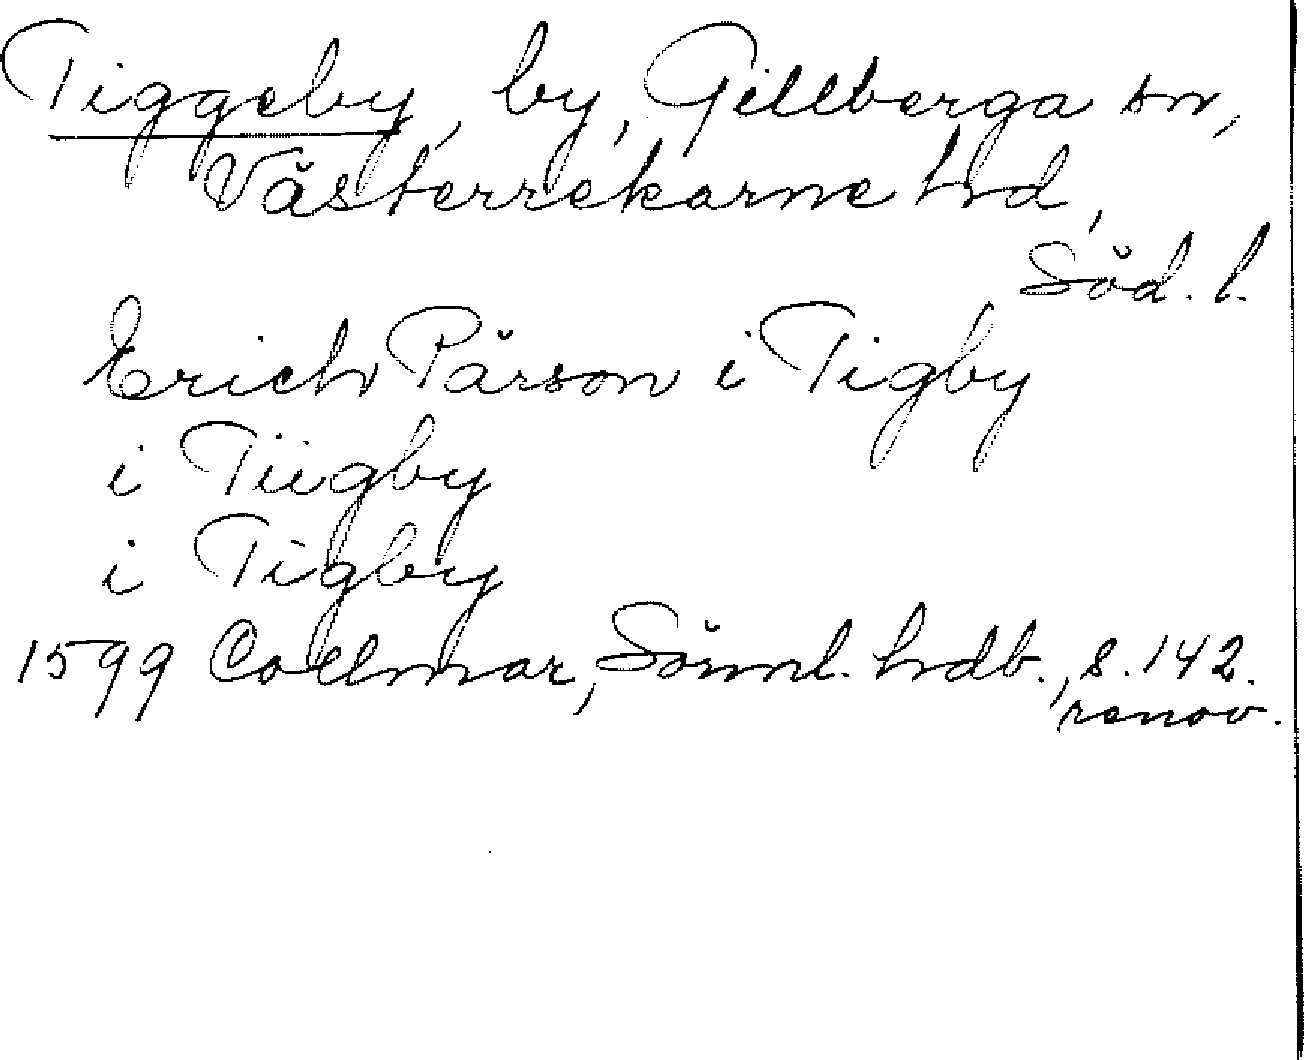 Tiggeby, by, Gillberga sn,
Västerrekarne hd,
Söd. l.
Erich Pärson i Tigby
i Tiigby
i Tigby
1599 Collmar, Sörml. hdb., s. 142.
renov.